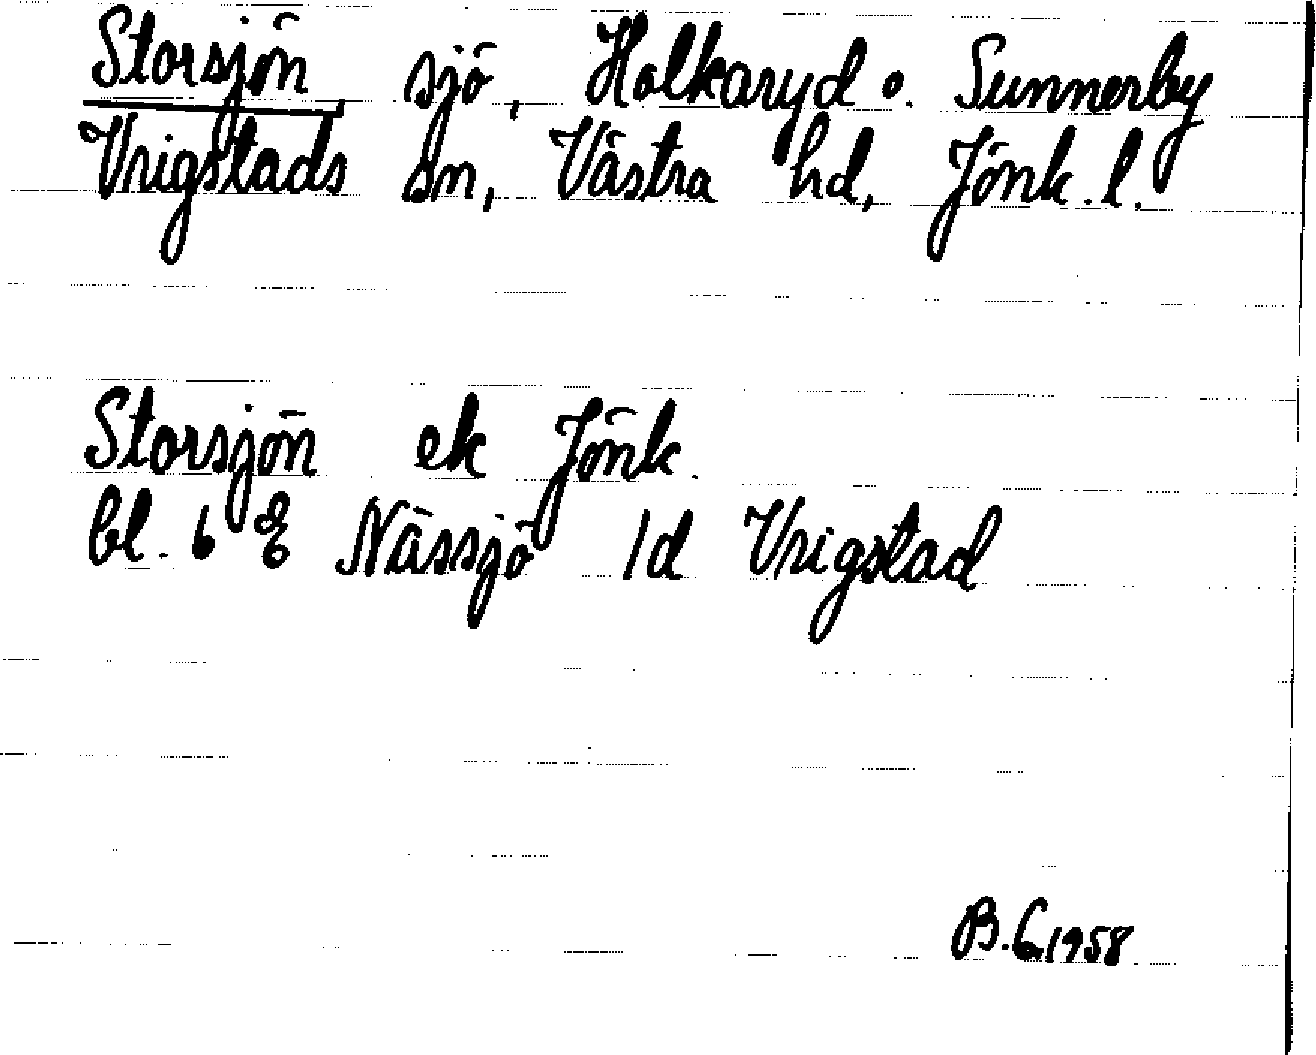 Storsjön sjö, Holkaryd o. Sunnerby
Vrigstads sn, Västra hd, Jönk. l.
Storsjön ek Jönk.
bl. 6 E Nässjö 1d Vrigstad
B.G 1958